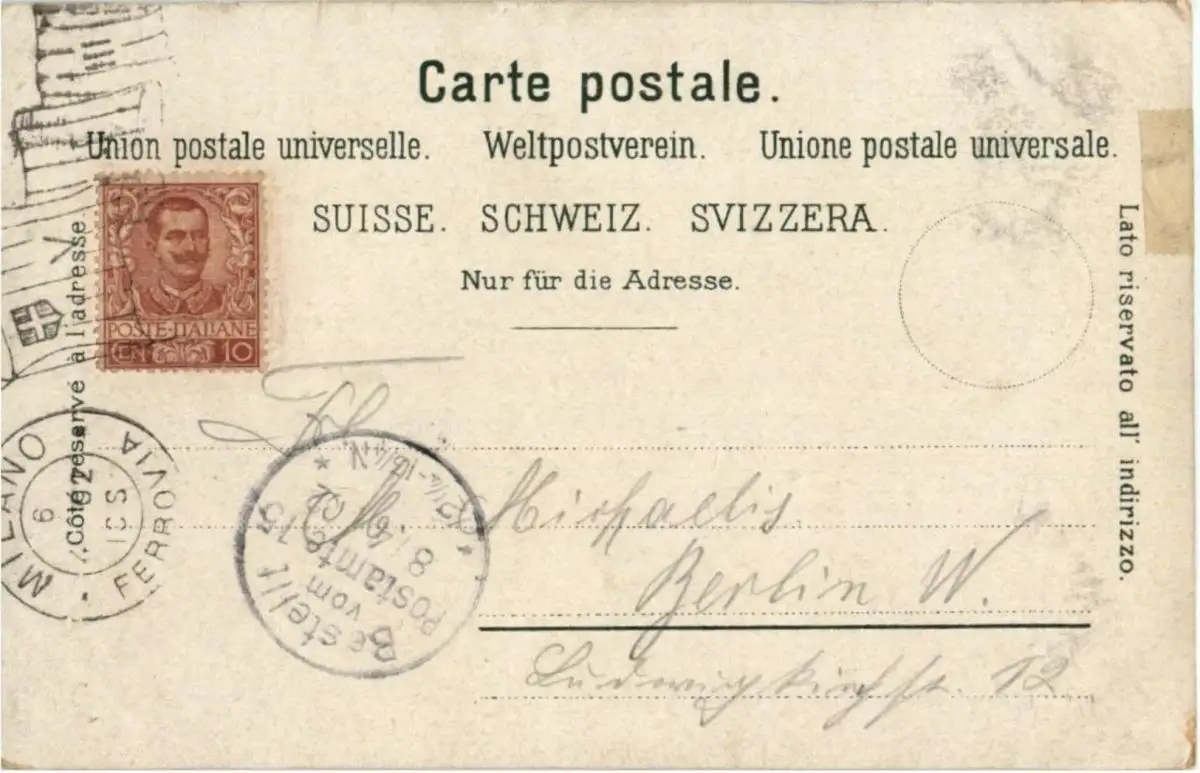 Carte postale.
Union postale universelle. Weltpostverein. Unione postale universale.
SUISSE. SCHWEIZ. SVIZZERA.
Nur für die Adresse.
Côté réservé à l'adresse
Lato riservato all' indirizzo.
POSTE·ITALIANE
CEN 10
MILANO
FERROVIA
Bestellt
vom
Postamte 15
8/4 02
Michaelis
Berlin W.
Ludwigkirchst. 12